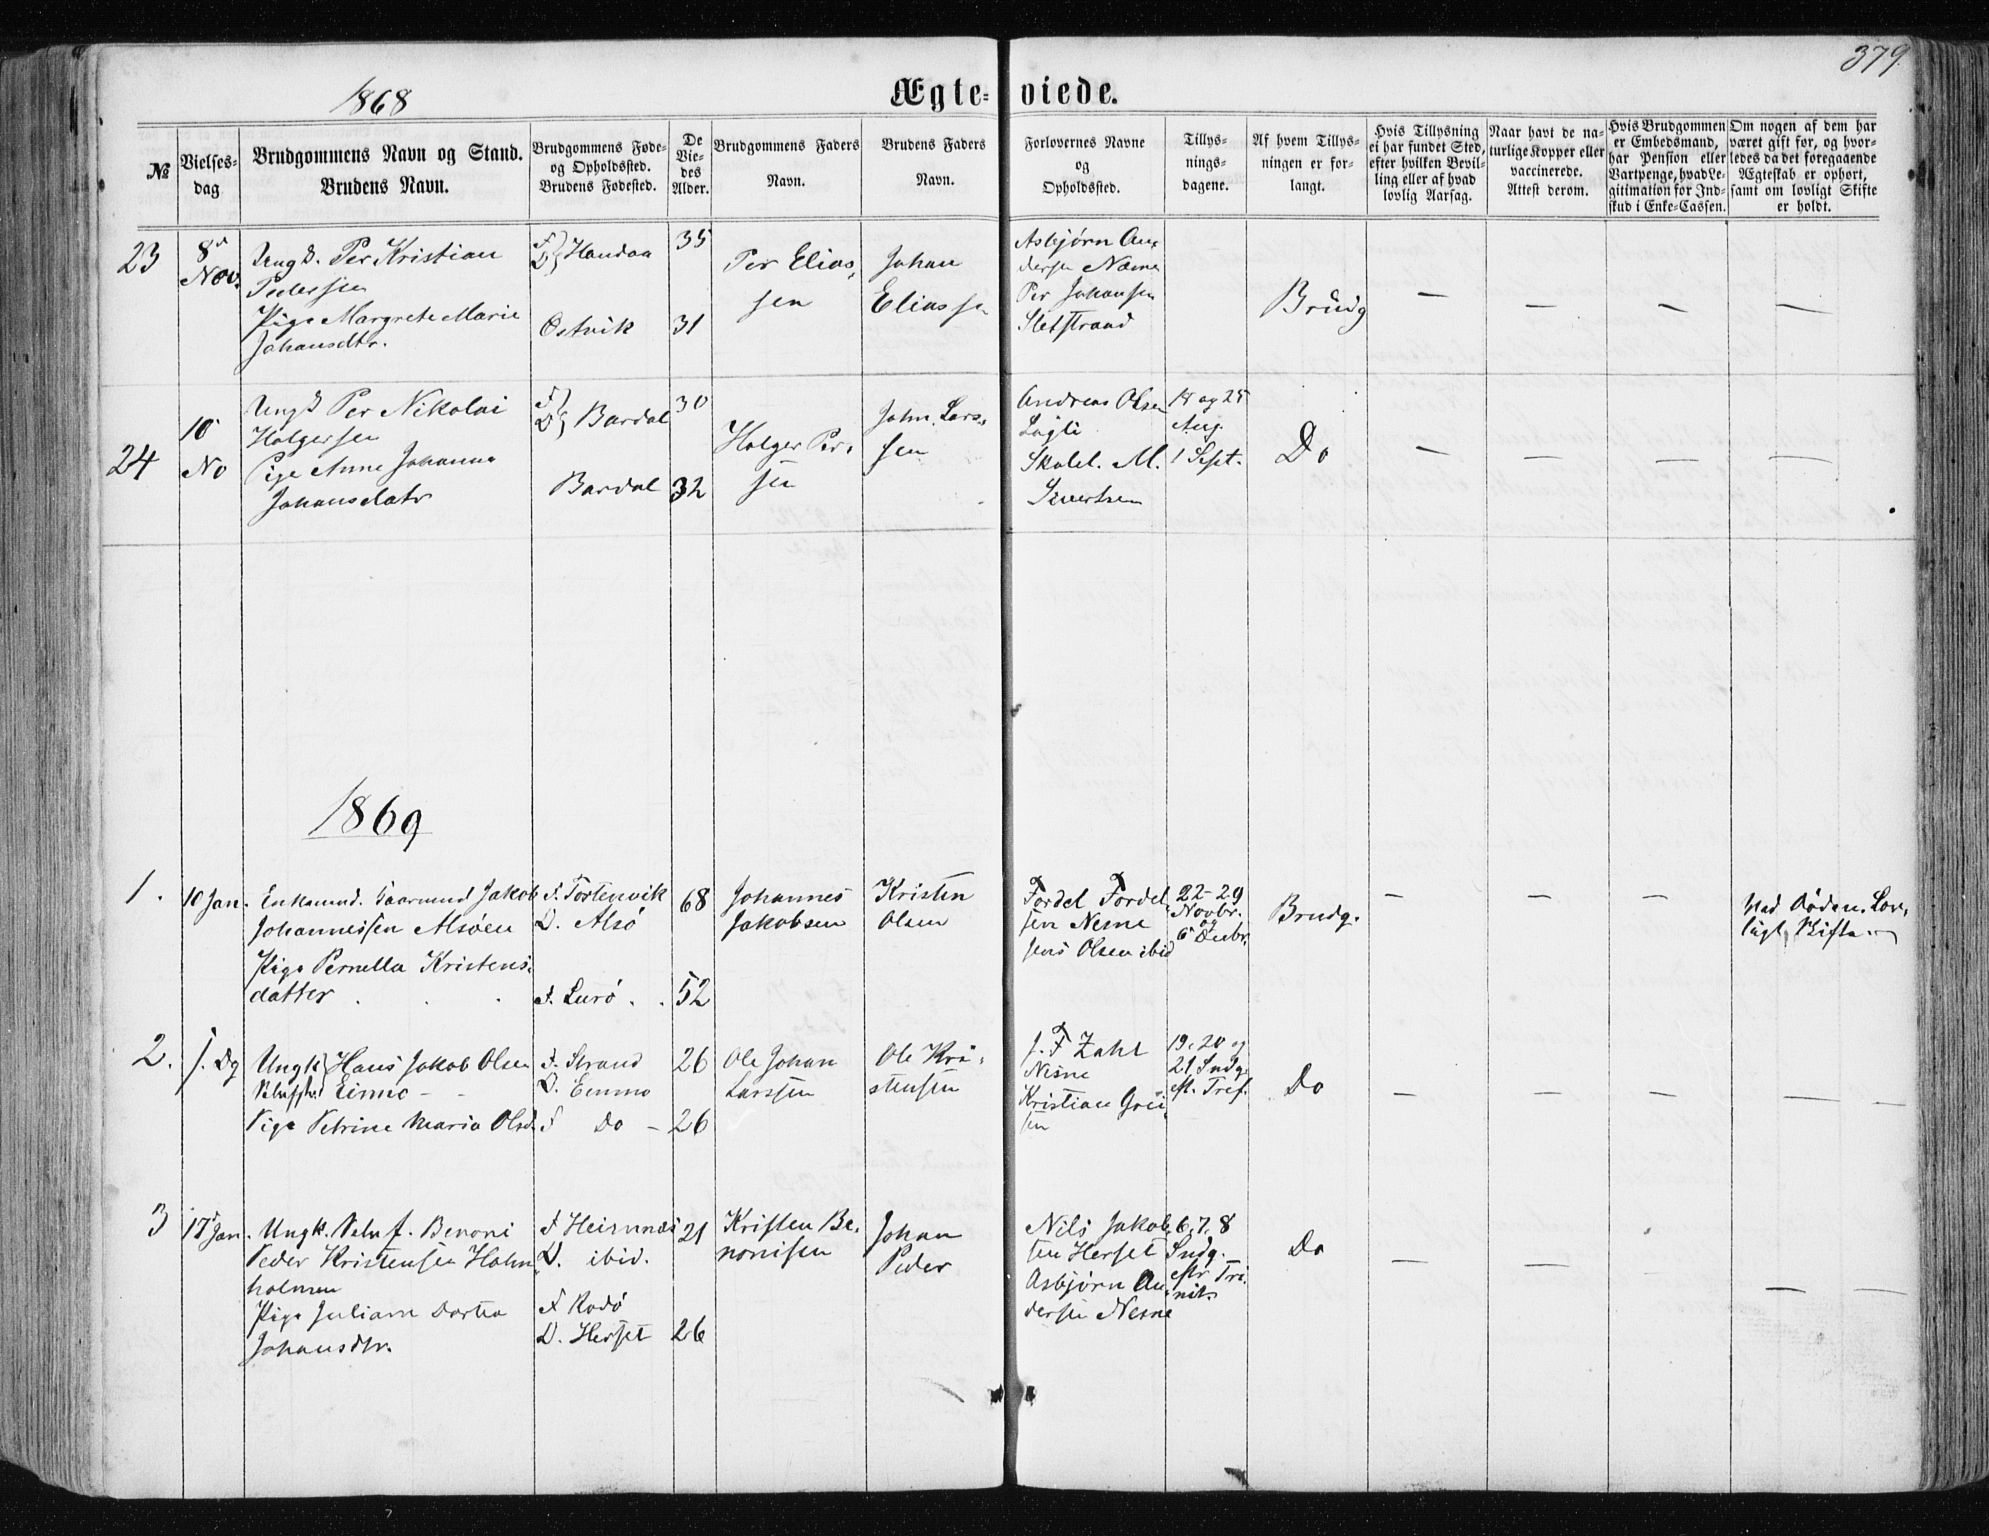 379.
1868
Ægte- viede.
№
Vielses-
dag
Brudgommens Navn og Stand.
Brudens Navn.
Brudgommens Føde-
og Opholdssted.
Brudens Fødested.
De
Vie-
des
Alder.
Brudgommens Faders
Navn.
Brudens Faders
Navn.
Forlovernes Navne
og
Opholdssted.
Tillys-
nings-
dagene.
Af hvem Tillys-
ningen er for-
langt.
Hvis Tillysning
ei har fundet Sted,
efter hvilken Bevil-
ling eller af hvad
lovlig Aarsag.
Naar havt de na-
turlige Kopper eller
vaccinerede.
Attest derom.
Hvis Brudgommen
er Embedsmand,
har Pension eller
Vartpenge, hvad Le-
gitimation for Ind-
skud i Enke-Cassen.
Om nogen af dem har
været gift før, og hvor-
ledes da det foregaaende
Ægteskab er ophørt,
samt om lovligt Skifte
er holdt.
23
8
Nov.
Per Kristian
Pedersen
Pige Margrete Marie
Johansdtr.
F
D Handaa
Ostvik
35
31
Per Elias,
sen
Johan
Eliassen
Asbjørn An,
dersen
Per Johansen
Sletstrand
Brudg
— — — —
24
10
No
Per Nikolai
Holgersen
Pige Anne Johanna
Johansdatr
F
D Bardal
Bardal
30
32
Holger Per,
sen
John Lars,
sen
Andreas Olsen
M.
Sivertsen
18 og 25
Aug.
1 Sept.
Do
— — — —
1869
1.
10 Jan.
Enkemd. Jakob
Johannessen Alsøen
Pige Pernella Kristens,
datter
F. Tortenvik
D. Alsø
F. Lurø
68
52
Johannes
Jakobsen
Kristen
Olsen
Tordel Tordel,
sen Nesne
Jens Olsen ibid
22-29
Novbr.
og
6 Decbr.
Brudg.
— — —
Ved Døden. Lov,
ligt Skifte
2.
s. Dg
Ungk Hans Jakob Olsen
Pige Petrine Maria Olsd.
F. Strand
F Do -
26
26
Ole Johan
Larssen
Ole Kri,
stensen
J. F Zahl
Nesne
Kristian
sen
19, 20 og
21 Sndg.
Do
— — — —
3
17 Jan.
Ungk. Benoni
Peder Kristensen Holm,
holmen
Pige Juliane Dortea
Johansdtr.
D. ibid.
F Rodø
D. Herset
21
26
Kristen Be,
nonisen
Johan
Peder
Nils Jakob,
sen Herset
Asbjørn An,
dersen Nesne
6, 7, 8
Sndg.
eftr Tri,
nit.
Do
— — — —